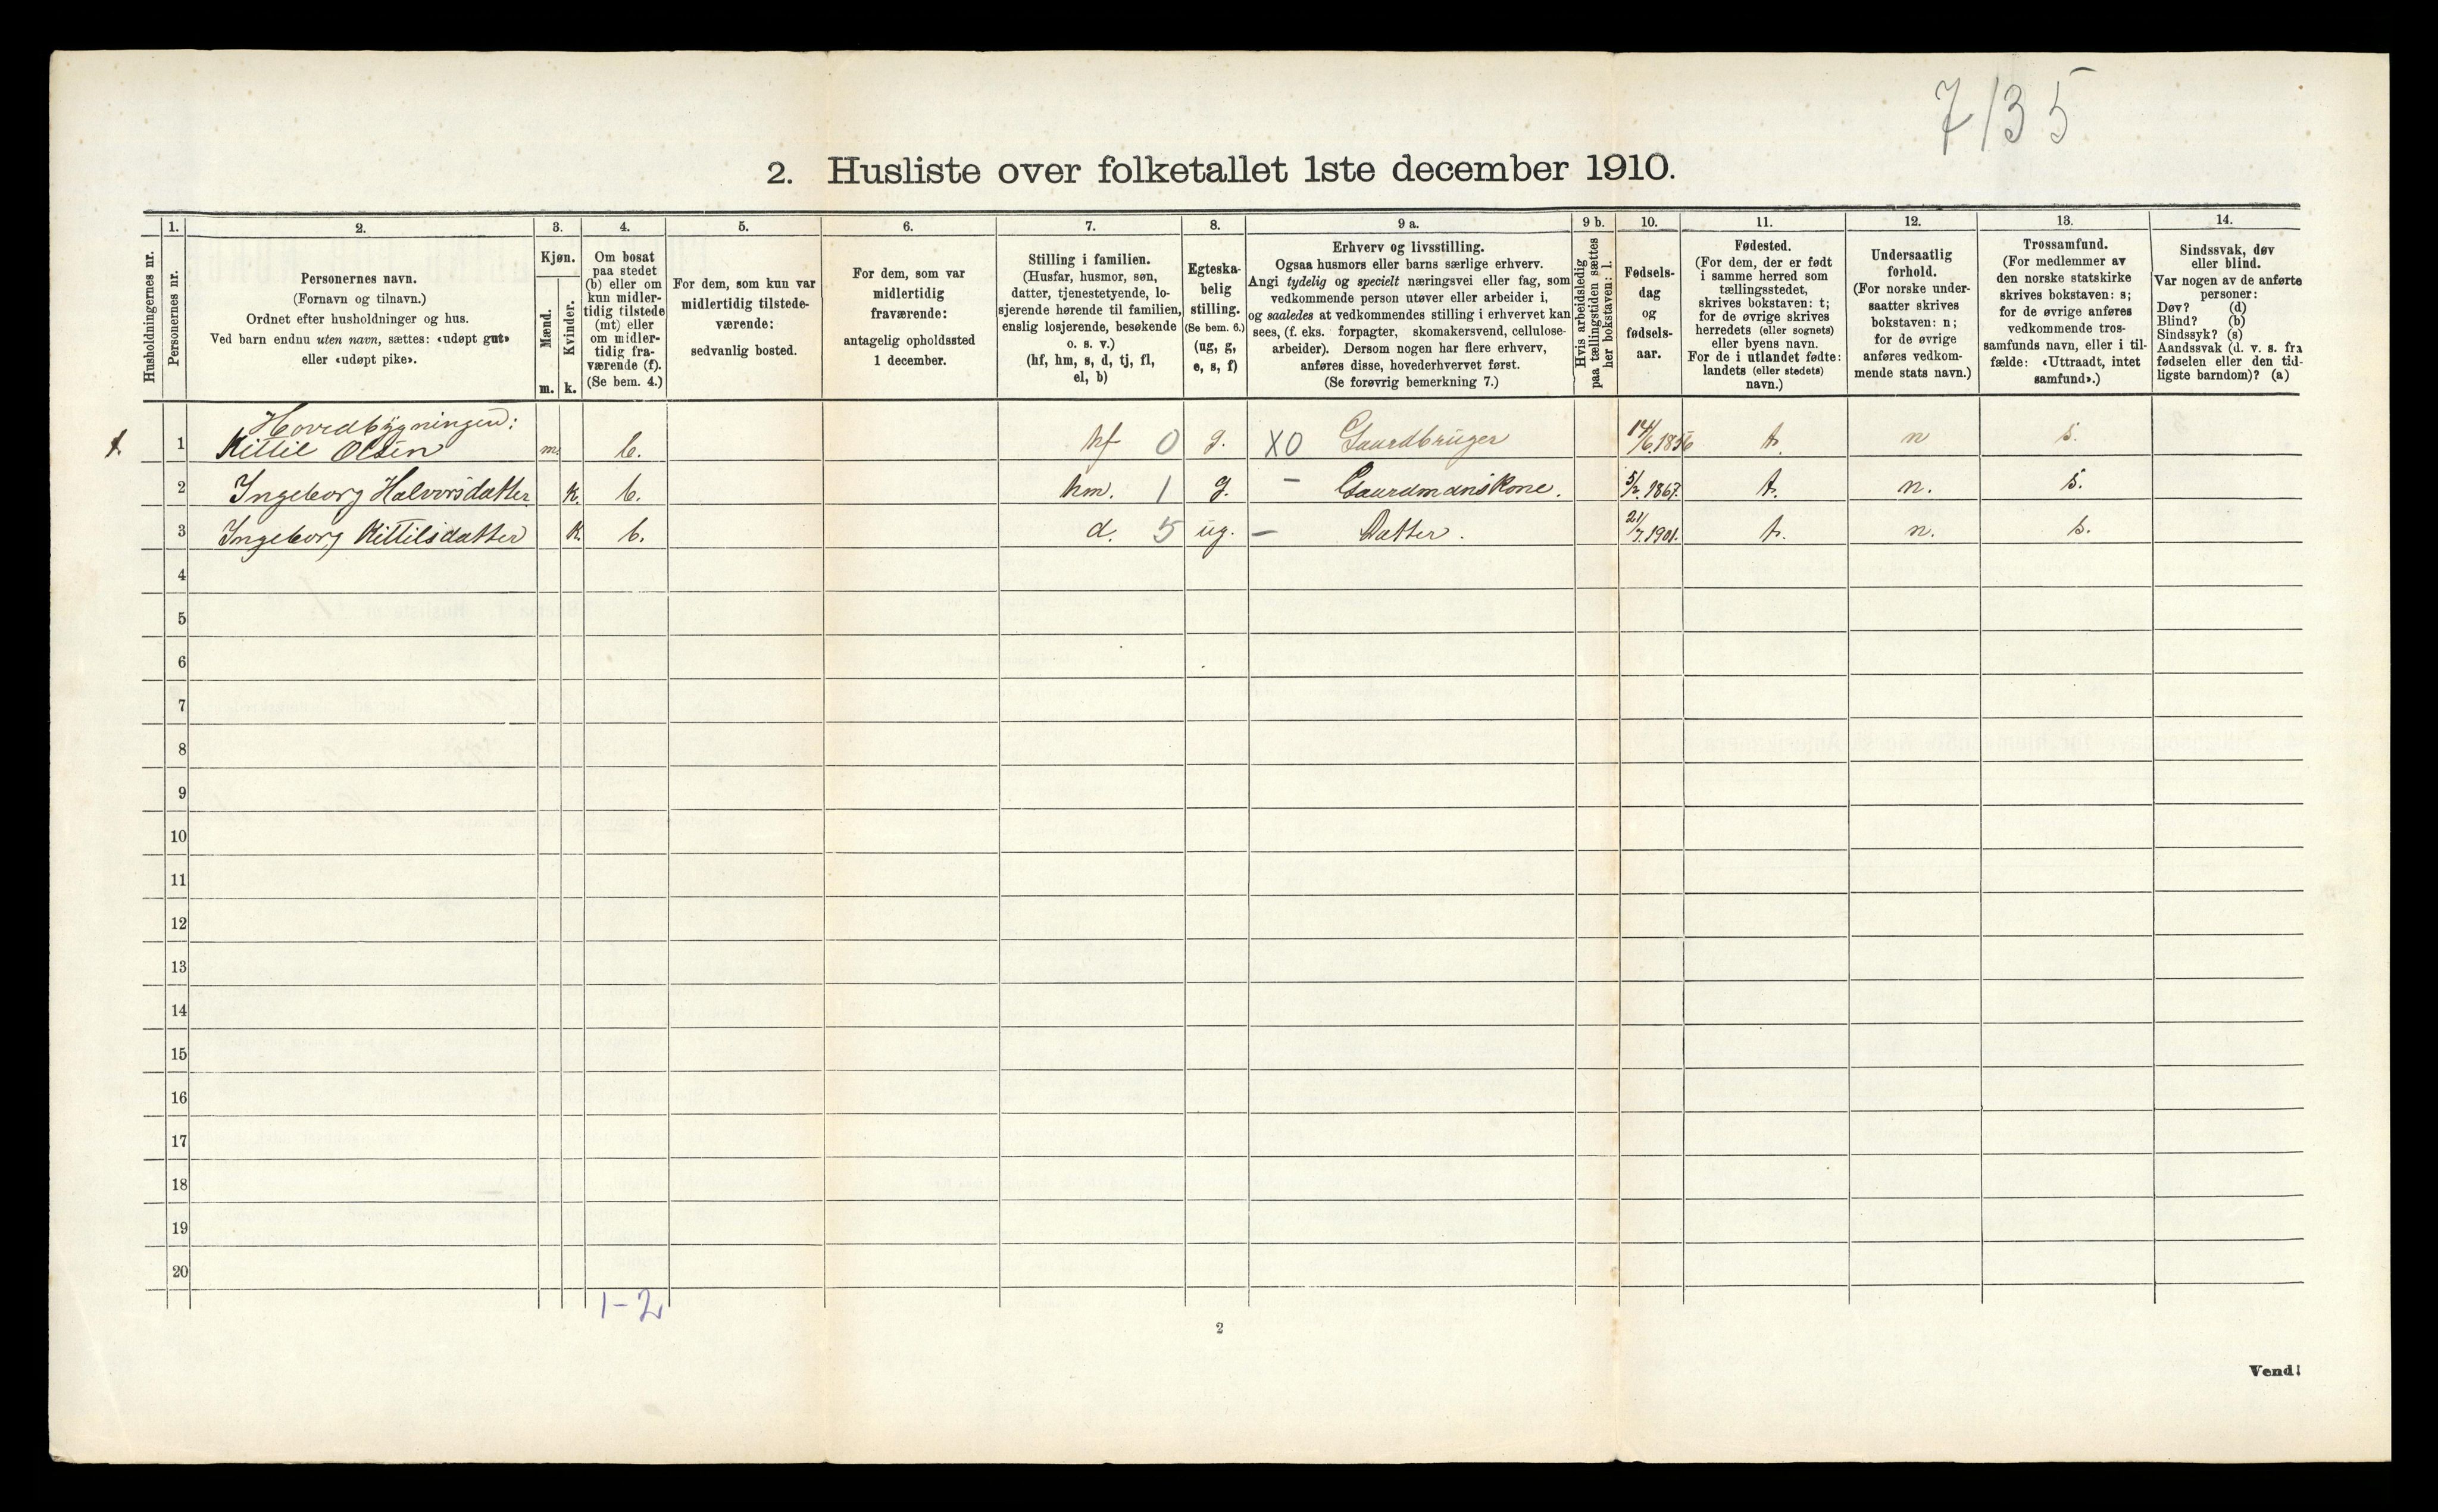 7/35
2. Husliste over folketallet 1ste december 1910.
Husholdningernes nr.
1.
Personernes nr.
2.
Personernes navn.
(Fornavn og tilnavn.)
Ordnet efter husholdninger og hus.
Ved barn endnu uten navn, sættes: «udøpt gut»
eller «udøpt pike».
3.
Kjøn.
Mænd.
m.
Kvinder.
k.
4.
Om bosat
paa stedet
(b) eller om
kun midler-
tidig tilstede
(mt) eller
om midler-
tidig fra-
værende (f).
(Se bem. 4.)
5.
For dem, som kun var
midlertidig tilstede-
værende:
sedvanlig bosted.
6.
For dem, som var
midlertidig
fraværende:
antagelig opholdssted
1 december.
7.
Stilling i familien.
(Husfar, husmor, søn,
datter, tjenestetyende, lo-
sjerende hørende til familien,
enslig losjerende, besøkende
o. s. v.)
(hf, hm, s, d, tj, fl,
el, b)
8.
Egteska-
belig
stilling.
(Se bem. 6.)
(ug, g,
e, s, f)
9 a.
Erhverv og livsstilling.
Ogsaa husmors eller barns særlige erhverv.
Angi tydelig og specielt næringsvei eller fag, som
vedkommende person utøver eller arbeider i,
og saaledes at vedkommendes stilling i erhvervet kan
sees, (f. eks. forpagter, skomakersvend, cellulose-
arbeider). Dersom nogen har flere erhverv,
anføres disse, hovederhvervet først.
(Se forøvrig bemerkning 7.)
9 b.
Hvis arbeidsledig
paa tællingstiden sættes
her bokstaven: l.
10.
Fødsels-
dag
og
fødsels-
aar.
11.
Fødested.
(For dem, der er født
i samme herred som
tællingsstedet,
skrives bokstaven: t;
for de øvrige skrives
herredets (eller sognets)
eller byens navn.
For de i utlandet fødte:
landets (eller stedets)
navn.)
12.
Undersaatlig
forhold.
(For norske under-
saatter skrives
bokstaven: n;
for de øvrige
anføres vedkom-
mende stats navn.)
13.
Trossamfund.
(For medlemmer av
den norske statskirke
skrives bokstaven: s;
for de øvrige anføres
vedkommende tros-
samfunds navn, eller i til-
fælde: «Uttraadt, intet
samfund».)
14.
Sindssvak, døv
eller blind.
Var nogen av de anførte
personer:
Døv? (d)
Blind? (b)
Sindssyk? (s)
Aandssvak (d. v. s. fra
fødselen eller den tid-
ligste barndom)? (a)
Hovedbygningen:
1 Kittil Olsen m. b. hf 0 g. X0 Gaardbruger 14/6.1856 t. n s.
2 Ingeborg Halvorsdatter k. b. hm. 1 g. - Gaardmandskone. 5/2.1867. t. n. s.
3 Ingeborg Kittilsdatter k. b. d. 5 ug. - Datter. 21/7.1901. t. n. s.
4
5
6
7
8
9
10
11
12
13
14
15
16
17
18
19
20
1-2
2
Vend!